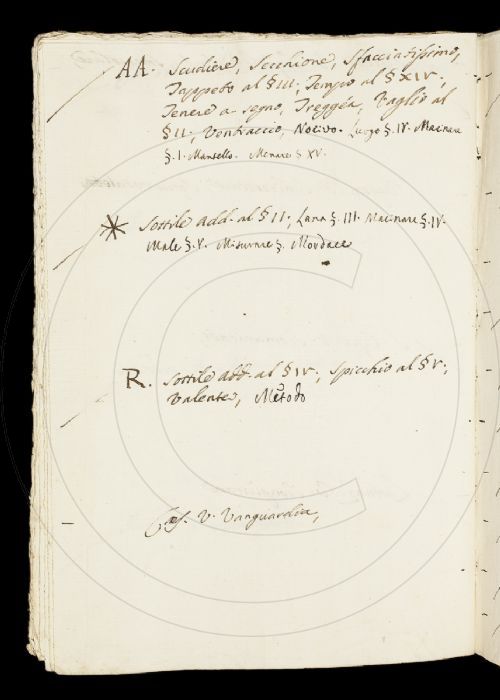 AA. Scudiere, Secchione, Sfacciatissimo,
Tappeto al § III; Tempo al § XIV;
Tenere a segno, Treggéa, Vaglio al
§ II; Ventraccio, Nocivo. Luogo § IV. Macinare
§. I. Mantello. Menare § XV.
* Sottile add. al § II; Lana §. III. Macinare §. IV.
Male §. V. Misurare §. Mordace
R. Sottile add. al § IV; Spicchio al § V;
Valente, Metodo
V. Vanguardia,